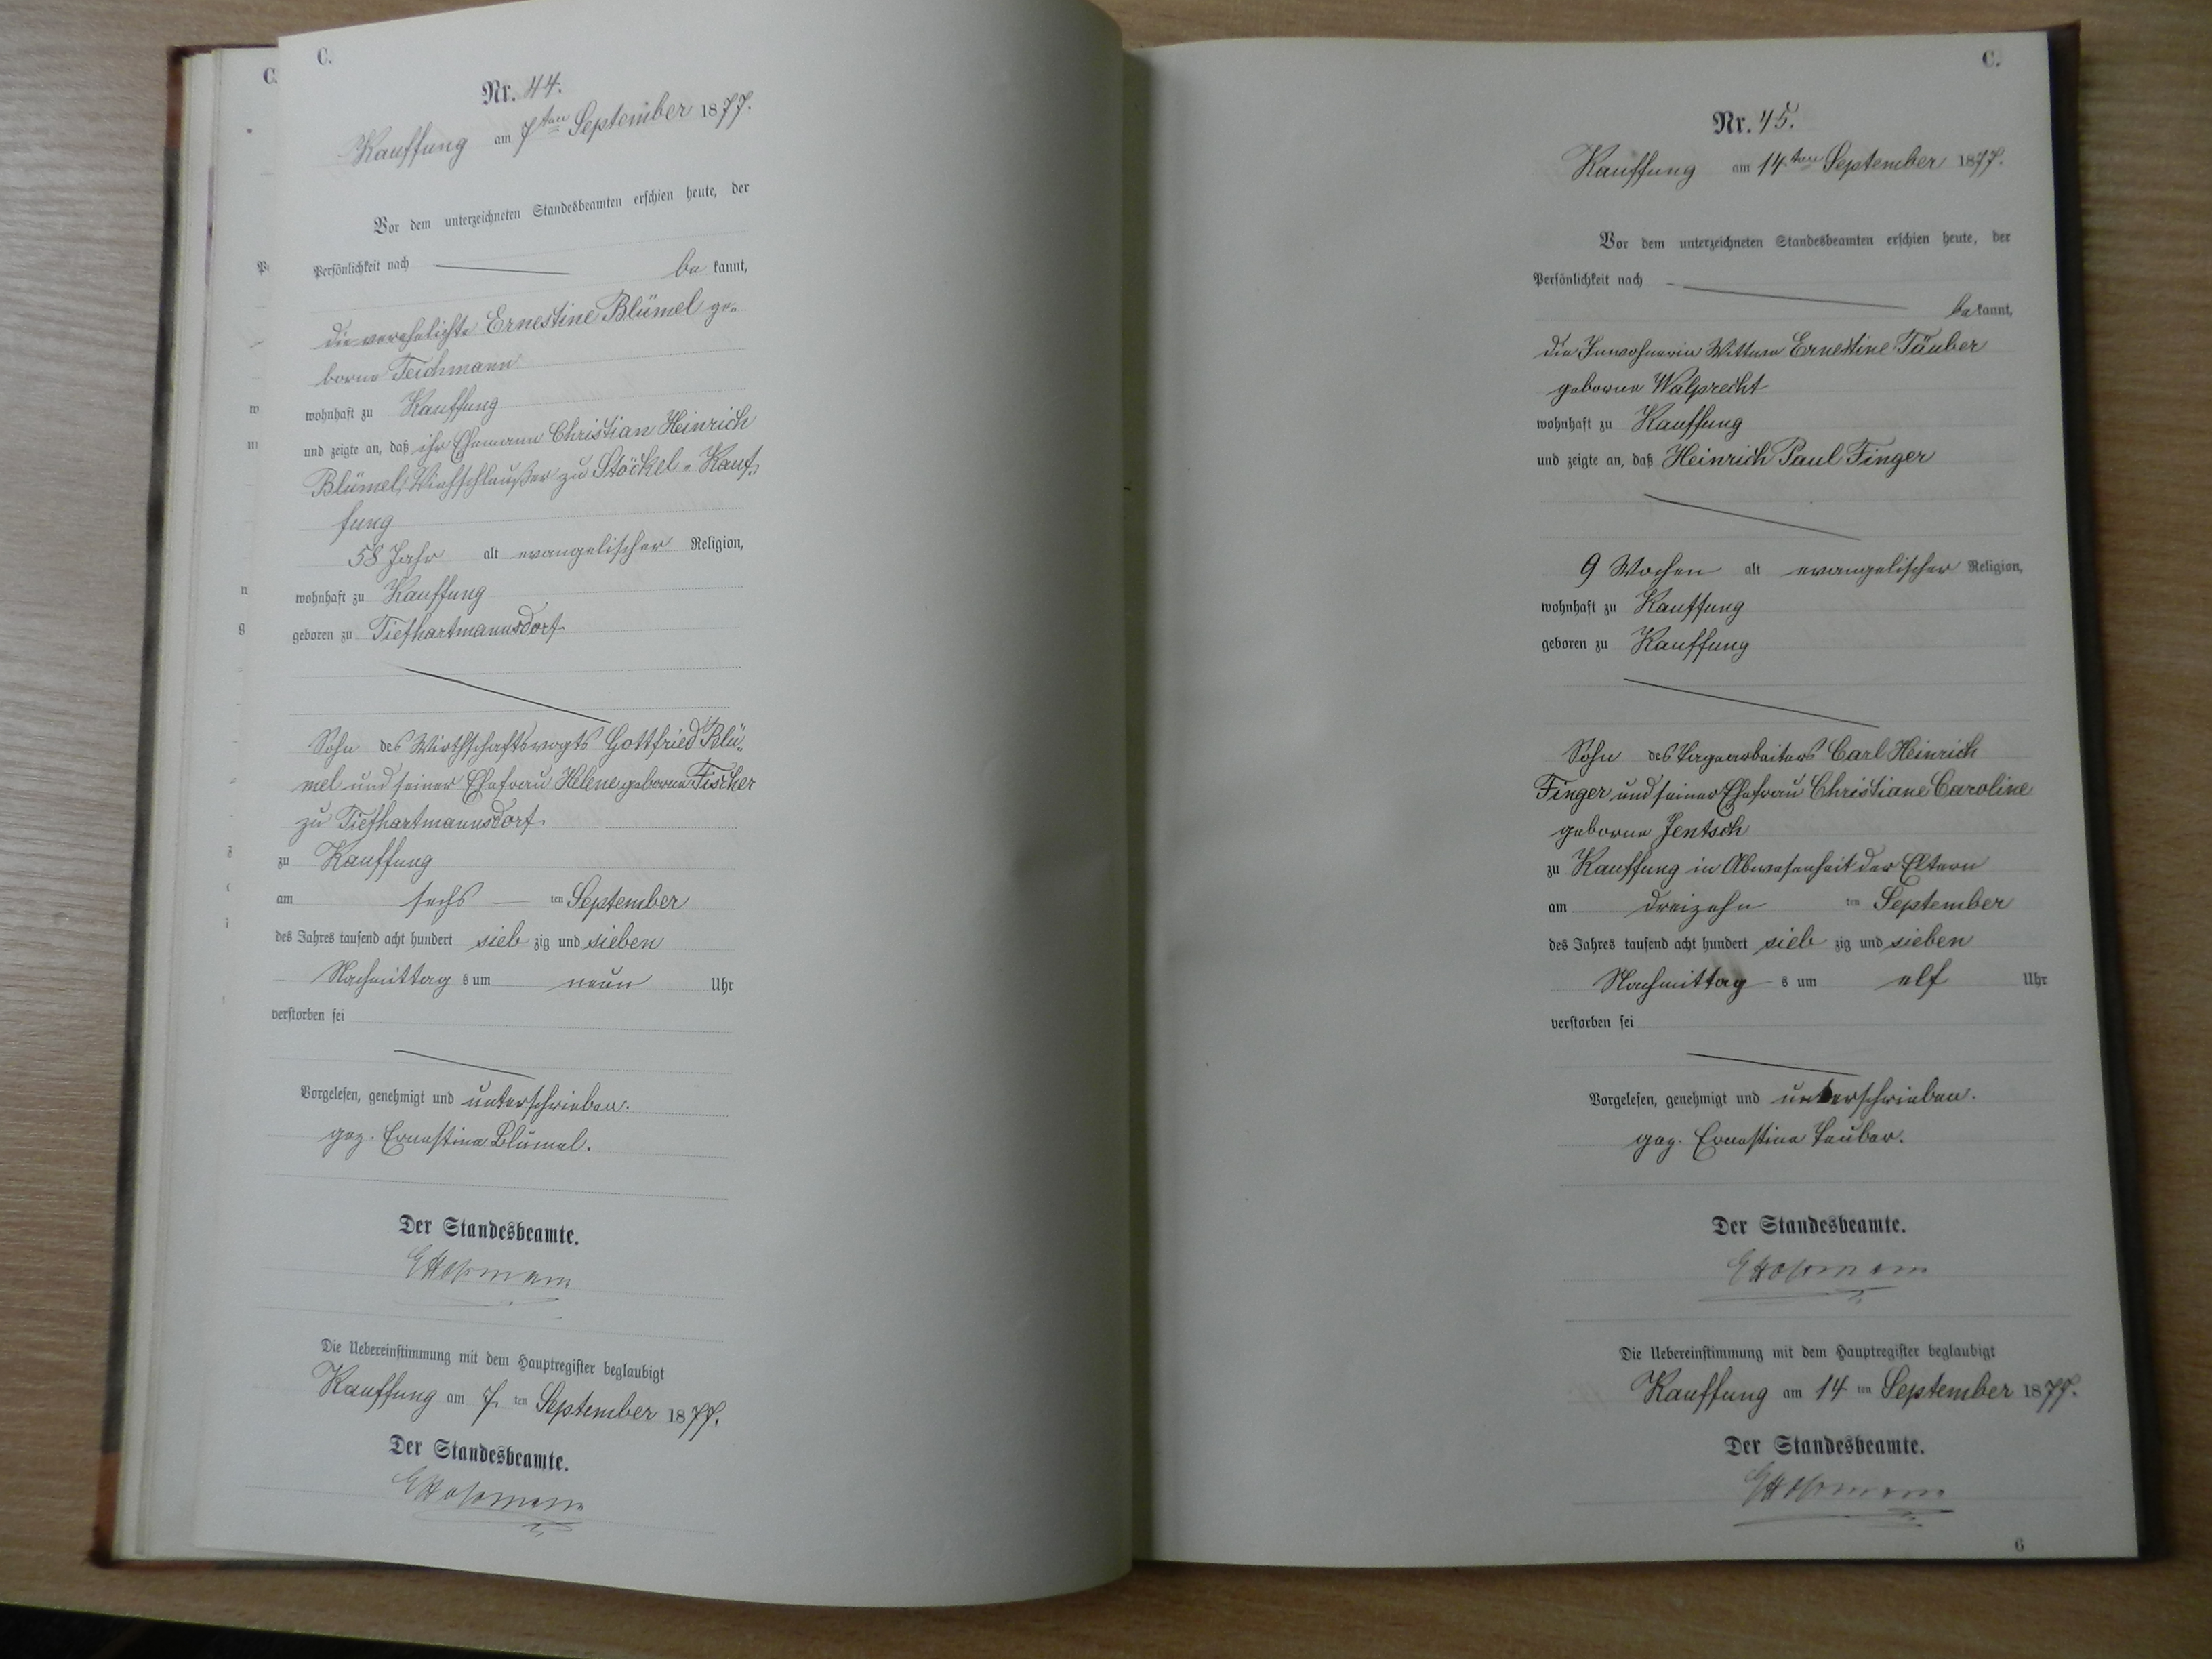 C.
C.
Nr. 44.
Kauffung am 7ten September 1877.
Vor dem unterzeichneten Standesbeamten erschien heute, der
Persönlichkeit nach be kannt,
die verehelichte Ernestine Blümel ge-
borne Teichmann
wohnhaft zu Kauffung
und zeigte an, daß ihr Ehemann Christian Heinrich
Blümel, zu Stöckel-Kauf-
fung
58 Jahr alt evangelischer Religion,
wohnhaft zu Kauffung
geboren zu Tiefhartmannsdorf
Sohn des Wirthschaftsvogts Gottfried Blü-
mel und seiner Ehefrau Helene geborne Fischer
zu Tiefhartmannsdorf.
zu Kauffung
am sechs ten September
des Jahres tausend acht hundert sieb zig und sieben
Nachmittag s um neun Uhr
verstorben sei
Vorgelesen, genehmigt und unterschrieben.
gez. Ernestine Blümel.
Der Standesbeamte.
Die Uebereinstimmung mit dem Hauptregister beglaubigt
Kauffung am 7. ten September 1877.
Der Standesbeamte.
C.
Nr. 45.
Kauffung am 14.ten September 1877.
Vor dem unterzeichneten Standesbeamten erschien heute, der
Persönlichkeit nach
be kannt,
die Inwohnerin Wittwe Ernestine Täuber
geborne Walprecht
wohnhaft zu Kauffung
und zeigte an, daß Heinrich Paul Finger
9 Wochen alt evangelischer Religion,
wohnhaft zu Kauffung
geboren zu Kauffung
Sohn des Tagearbeiters Carl Heinrich
Finger und seiner Ehefrau Christiane Caroline
geborne Jentsch
zu Kauffung in Abwesenheit der Eltern
am dreizehn ten September
des Jahres tausend acht hundert sieb zig und sieben
Nachmittag s um elf Uhr
verstorben sei
Vorgelesen, genehmigt und unterschrieben.
gez. Ernestine Teuber.
Der Standesbeamte.
Die Uebereinstimmung mit dem Hauptregister beglaubigt
Kauffung am 14 ten September 1877.
Der Standesbeamte.
6